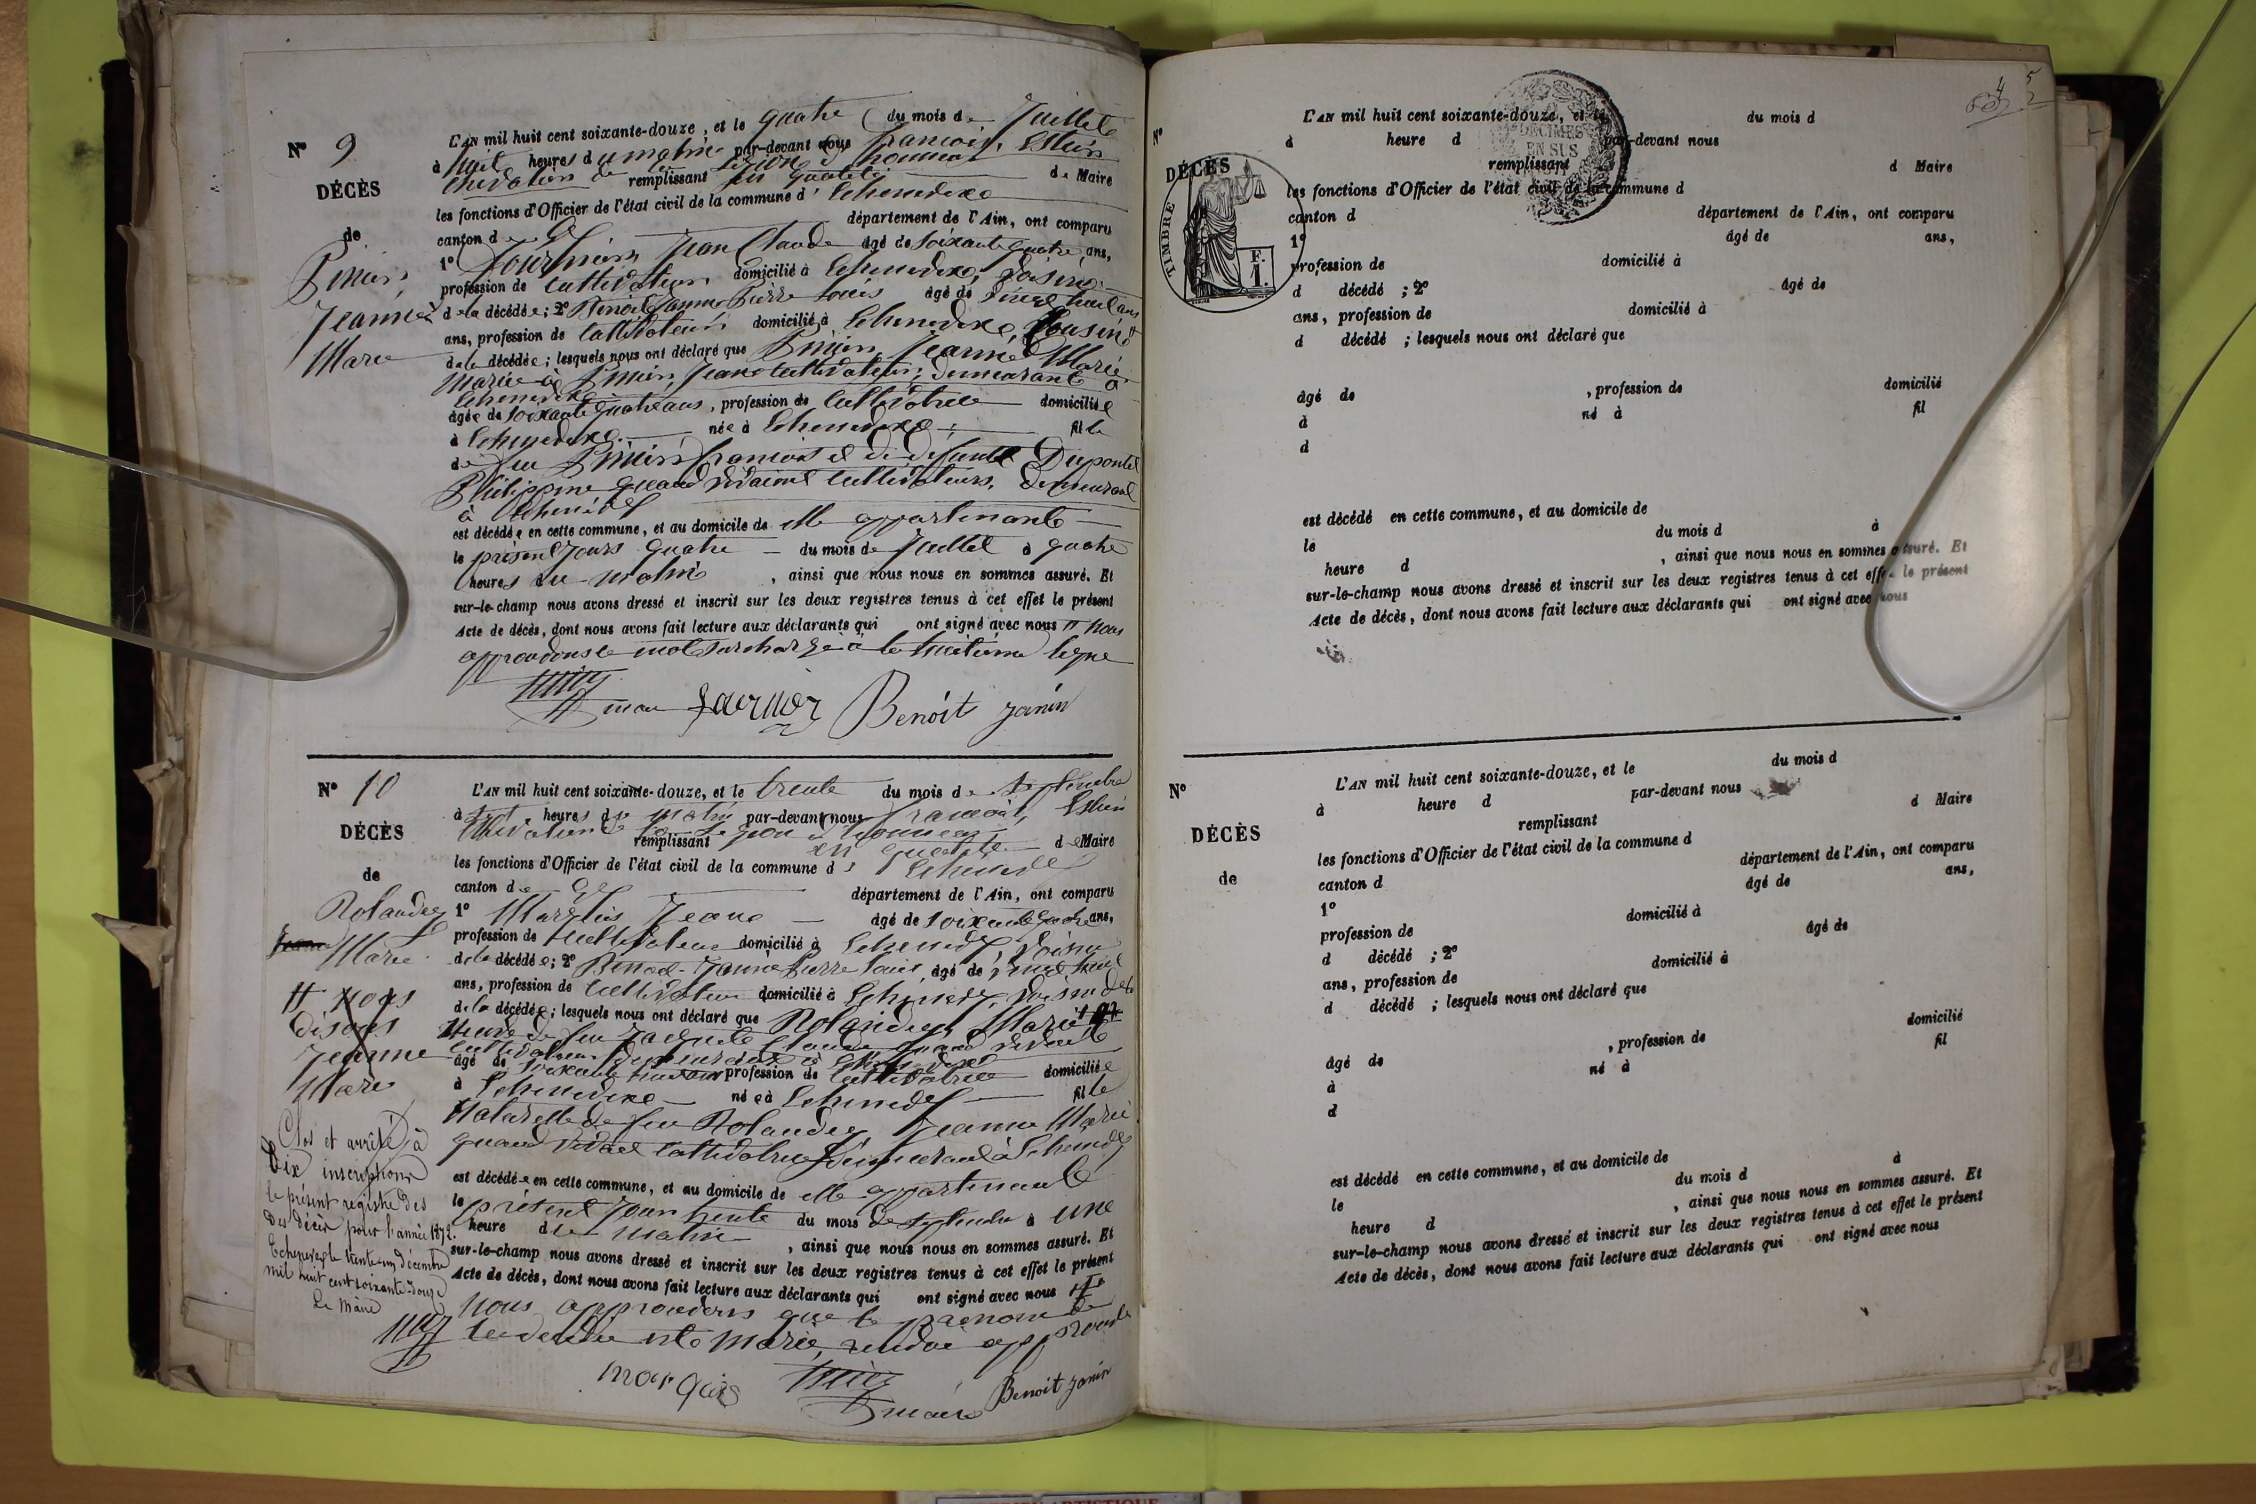 Nº 9
DÉCÈS
de
Jeanne
Marie
L'AN mil huit cent soixante-douze, et le quatre du mois de Juillet
à huit heures du matin par-devant nous François
Chevalier de la Légion d'honneur remplissant en qualité de Maire
les fonctions d'Officier de l'état civil de la commune d' Echenevex
canton de Gex département de l'Ain, ont comparu
1º Fournier Jean Claude âgé de soixante quatre ans,
profession de cultivateur domicilié à Echenevex, voisin
de la décédée ; 2º Benoit Janin Pierre Louis âgé de vingt huit ans
ans, profession de cultivateur domicilié à Echenevex, Cousin
de la décédée ; lesquels nous ont déclaré que Jeanne Marie
Mariée à Jean cultivateur, demeurant à
Echenevex
âgée de soixante quatre ans, profession de cultivatrice domiciliée
à Echenevex née à Echenevex fille
de feu François et de défunte Dupontet
Philippine quand vivaient cultivateurs, demeurant
à Echenevex
est décédée en cette commune, et au domicile de elle appartenante
le présent jour quatre du mois de Juillet à quatre
heures du matin, ainsi que nous nous en sommes assuré. Et
sur-le-champ nous avons dressé et inscrit sur les deux registres tenus à cet effet le présent
Acte de décès, dont nous avons fait lecture aux déclarants qui ont signé avec nous # nous
approuvons le mot surchargé à la huitième ligne
maire fournier Benoit Janin
Nº 10
DÉCÈS
de
Rolandez
Marie
# nous
disons
Jeanne
Marie
L'AN mil huit cent soixante-douze, et le trente du mois de Septembre
à sept heures du matin par-devant nous François
Chevalier de la Légion d'honneur
remplissant en qualité de Maire
les fonctions d'Officier de l'état civil de la commune d' Echenevex
canton de Gex département de l'Ain, ont comparu
1º Marquis Jean âgé de soixante quatre ans,
profession de cultivateur domicilié à Echenevex, voisin
de la décédée ; 2º Benoit-Janin Pierre Louis, âgé de vingt huit
ans, profession de cultivateur domicilié à Echenevex, voisin de la
de la décédée ; lesquels nous ont déclaré que Rolandez Marie #
Veuve de feu Claude quand vivait
cultivateur demeurant à Echenevex
âgé de soixante profession de cultivatrice domiciliée
à Echenevex née à Echenevex fille
Naturelle de feu Rolandez Jeanne Marie
quand vivait cultivatrice demeurant à Echenevex
est décédée en cette commune, et au domicile de elle appartenante
le présent jour trente du mois de Septembre à une
heure du matin, ainsi que nous nous en sommes assuré. Et
sur-le-champ nous avons dressé et inscrit sur les deux registres tenus à cet effet le présent
Acte de décès, dont nous avons fait lecture aux déclarants qui ont signé avec nous #
nous approuvons que le prénom de
Marie
marquis maire Benoit Janin
Clos et arrêté à
dix inscriptions
le présent registre des
des décès pour l'année 1872.
Echenevex le trente un décembre
mil huit cent soixante-douze
Le Maire
Nº
DÉCÈS
TIMBRE
F.
1.
DÉCIMES
EN SUS
L'AN mil huit cent soixante-douze, et le du mois d
à heure d par-devant nous
remplissant d Maire
les fonctions d'Officier de l'état civil de la commune d
canton d département de l'Ain, ont comparu
1º âgé de ans,
profession de domicilié à
d décédé ; 2º âgé de
ans, profession de domicilié à
d décédé ; lesquels nous ont déclaré que
âgé de , profession de domicilié
à né à fil
d
est décédé en cette commune, et au domicile de
le du mois d à
heure d , ainsi que nous nous en sommes assuré. Et
sur-le-champ nous avons dressé et inscrit sur les deux registres tenus à cet effet le présent
Acte de décès, dont nous avons fait lecture aux déclarants qui ont signé avec nous
Nº
DÉCÈS
de
L'AN mil huit cent soixante-douze, et le du mois d
à heure d par-devant nous
remplissant d Maire
les fonctions d'Officier de l'état civil de la commune d
canton d département de l'Ain, ont comparu
1º âgé de ans,
profession de domicilié à
d décédé ; 2º âgé de
ans, profession de domicilié à
d décédé ; lesquels nous ont déclaré que
âgé de , profession de domicilié
à né à fil
d
est décédé en cette commune, et au domicile de
le du mois d à
heure d , ainsi que nous nous en sommes assuré. Et
sur-le-champ nous avons dressé et inscrit sur les deux registres tenus à cet effet le présent
Acte de décès, dont nous avons fait lecture aux déclarants qui ont signé avec nous